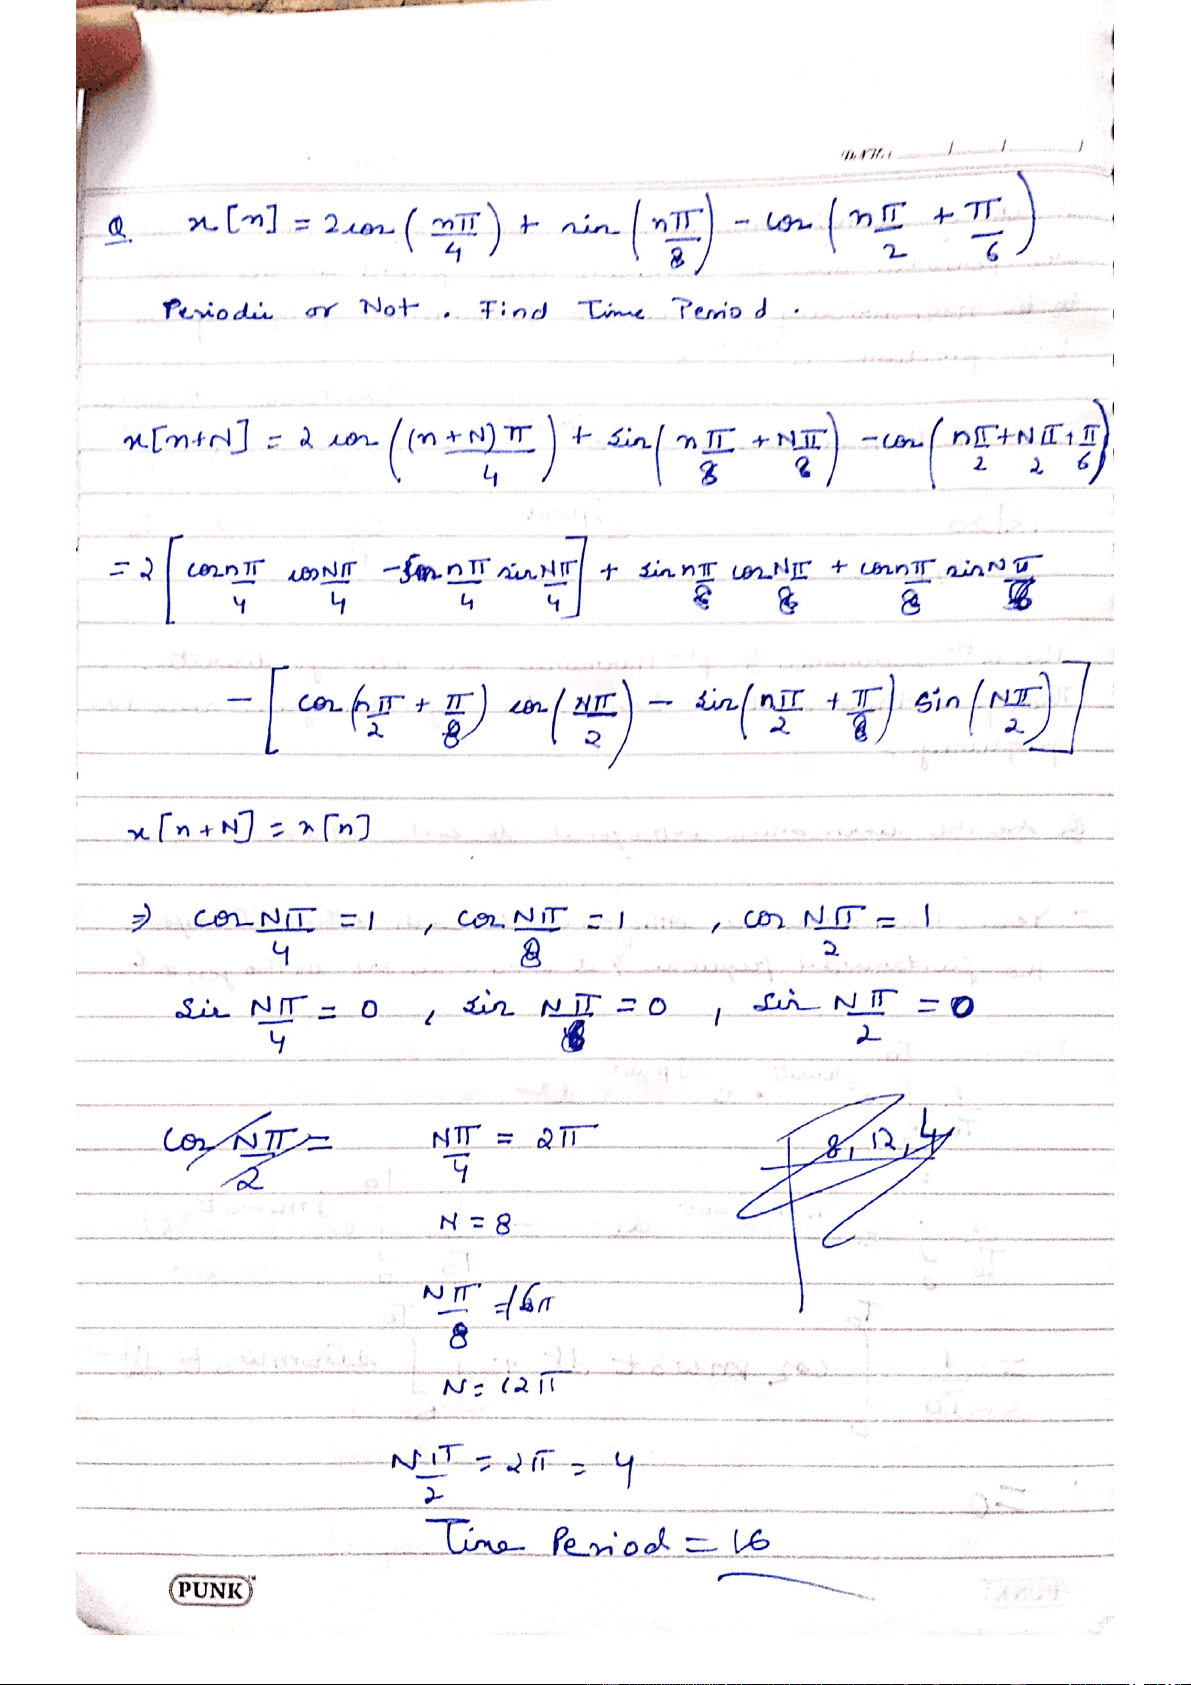 DATE: / /
Q x[n] = 2cos(nπ/4) + sin(nπ/8) - cos(nπ/2 + π/6)
Periodic or Not. Find Time Period.
x[n+N] = 2 cos((n+N)π/4) + sin(nπ/8 + Nπ/8) - cos(nπ/2 + Nπ/2 + π/6)
= 2[cos nπ/4 cos Nπ/4 - sin nπ/4 sin Nπ/4] + sin nπ/8 cos Nπ/8 + cos nπ/8 sin Nπ/8
- [cos(nπ/2 + π/8) cos(Nπ/2) - sin(nπ/2 + π/8) sin(Nπ/2)]
x[n+N] = x[n]
⇒ cos Nπ/4 = 1 , cos Nπ/8 = 1 , cos Nπ/2 = 1
sin Nπ/4 = 0 , sin Nπ/8 = 0 , sin Nπ/2 = 0
cos Nπ/2 = Nπ/4 = 2π 8, 12, 4
N = 8
Nπ/8 = 16π
N = 12π
Nπ/2 = 2π = 4
Time Period = 16
PUNK